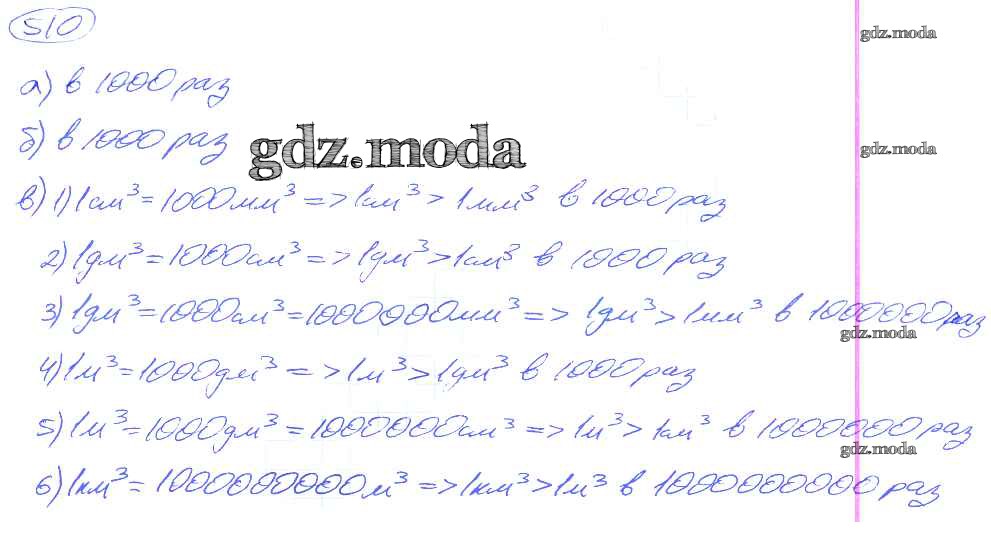 510
gdz.moda
а) в 1000 раз
б) в 1000 раз
gdz.moda
gdz.moda
в) 1) 1см³ = 1000мм³ => 1см³ > 1мм³ в 1000 раз
2) 1дм³ = 1000см³ => 1дм³ > 1см³ в 1000 раз
3) 1дм³ = 1000см³ = 1000000мм³ => 1дм³ > 1мм³ в 1000000 раз
gdz.moda
4) 1м³ = 1000дм³ => 1м³ > 1дм³ в 1000 раз
5) 1м³ = 1000дм³ = 1000000см³ => 1м³ > 1см³ в 1000000 раз
gdz.moda
6) 1км³ = 1000000000м³ => 1км³ > 1м³ в 1000000000 раз